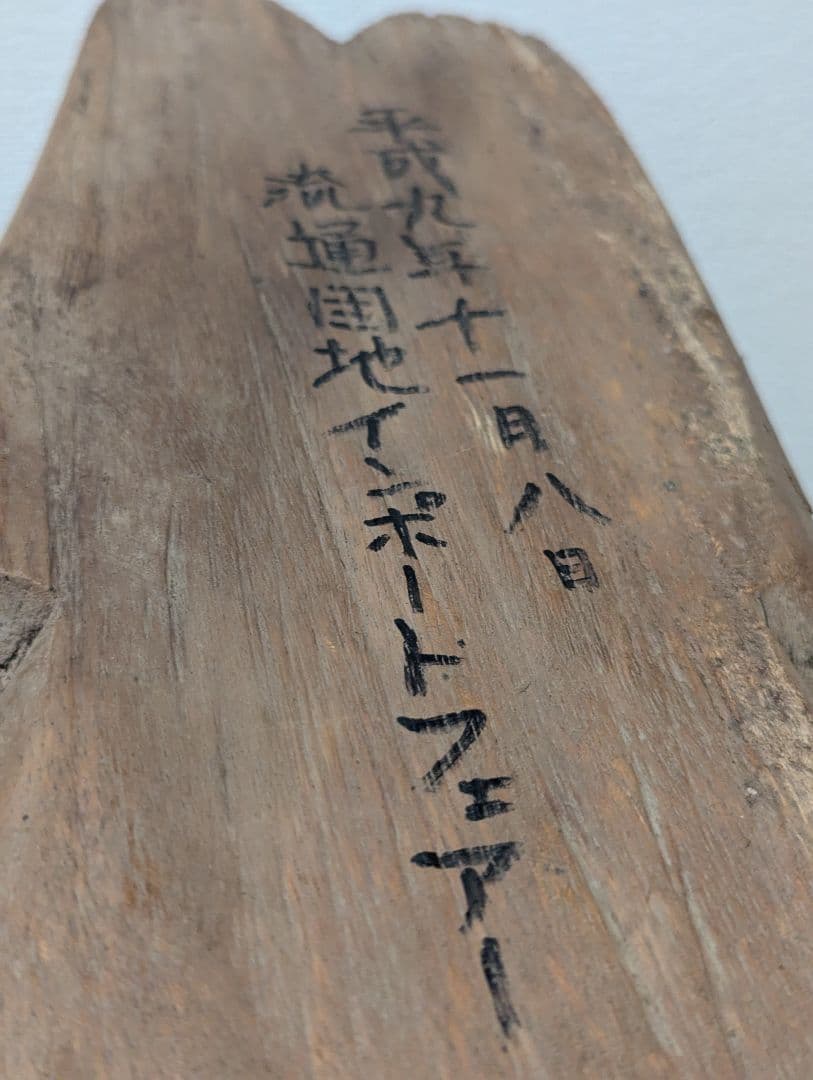 平成九年十一月八日
流通団地インポートフェアー